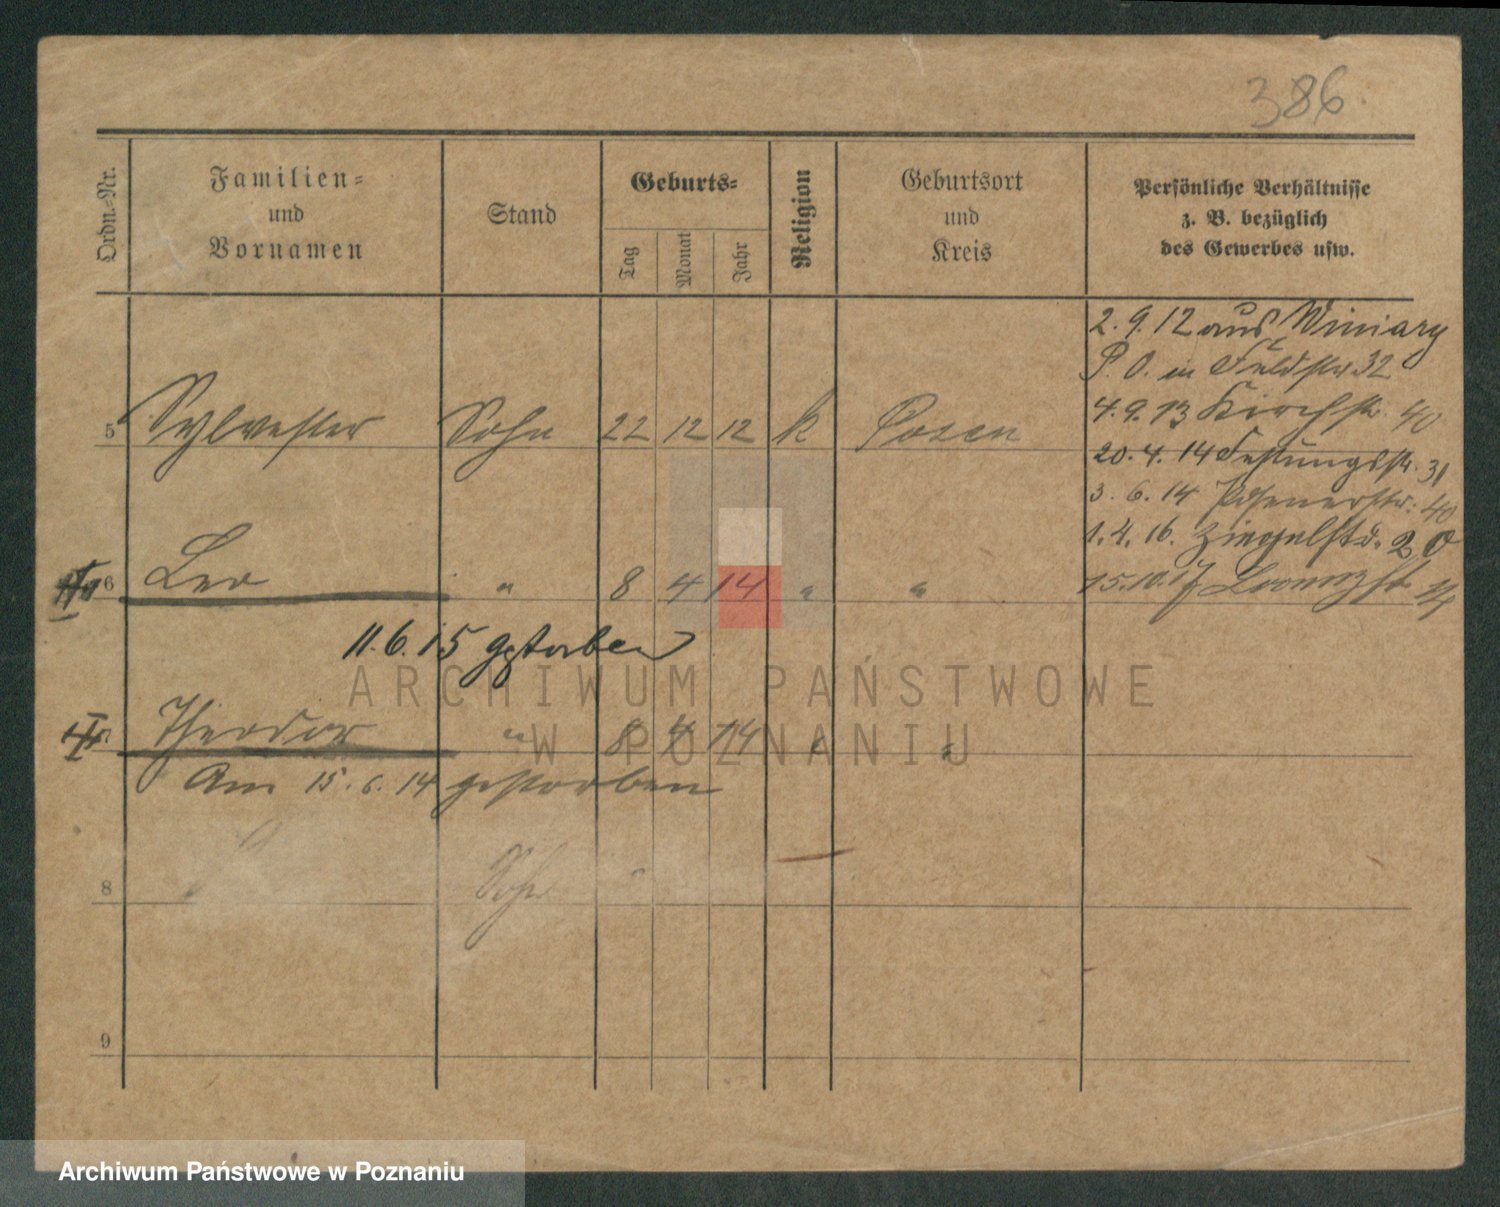 386
Ordn.-Nr.
Familien-
und
Vornamen
Stand
Geburts-
Tag
Monat
Jahr
Religion
Geburtsort
und
Kreis
Persönliche Verhältnisse
z. B. bezüglich
des Gewerbes usw.
2. 9. 12 aus Winiary
P. O. in Feldstr 32
4. 9. 13 Kirchstr. 40
20. 4. 14 Festungsstr. 31
3. 6. 14 Posenerstr. 40
1. 4. 16. Ziegelstr. 20
15. 10. 17
5 Sylvester Sohn 22 12 12 k Posen
6 Leo " 8 4 14 " "
11. 6. 15 gestorben
7 Theodor " 8 4 14 " "
Am 15. 6. 14 gestorben
8 Sohn
9
ARCHIWUM PAŃSTWOWE
W POZNANIU
Archiwum Państwowe w Poznaniu